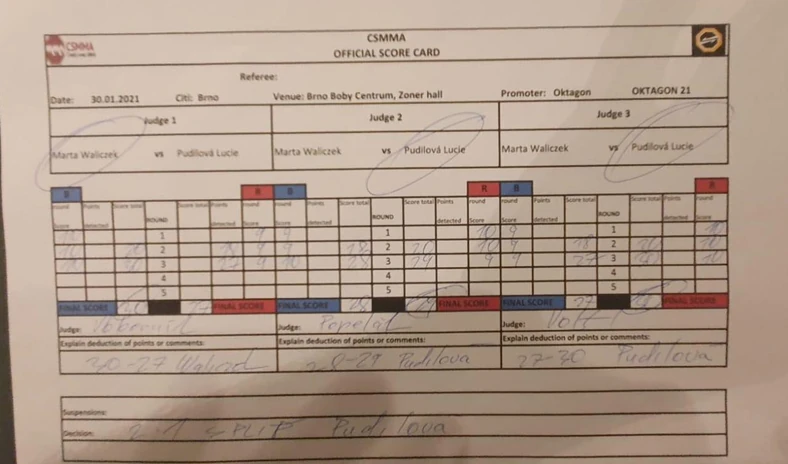 CSMMA
CSMMA
OFFICIAL SCORE CARD
Referee:
Date: 30.01.2021 Citi: Brno Venue: Brno Boby Centrum, Zoner hall Promoter: Oktagon OKTAGON 21
Judge 1 Judge 2 Judge 3
Marta Waliczek vs Pudilová Lucie Marta Waliczek vs Pudilová Lucie Marta Waliczek vs Pudilová Lucie
B R B R B R
round Score Points detected Score total ROUND Score total Points detected round Score round Score Points detected Score total ROUND Score total Points detected round Score round Score Points detected Score total ROUND Score total Points detected round Score
10 1 9 9 1 10 9 1 10
10 20 2 18 9 9 18 2 20 10 9 18 2 20 10
10 30 3 27 9 10 28 3 29 9 9 27 3 30 10
4 4 4
5 5 5
FINAL SCORE 30 27 FINAL SCORE FINAL SCORE 28 29 FINAL SCORE FINAL SCORE 27 30 FINAL SCORE
Judge: Judge: Judge:
Explain deduction of points or comments: Explain deduction of points or comments: Explain deduction of points or comments:
30-27 28-29 Pudilova 27-30 Pudilová
Suspensions:
Decision: 2-1 SPLIT Pudilova